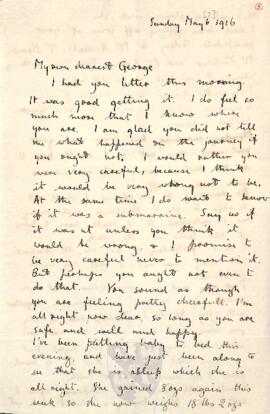 Sunday May 6 1916
My own dearest George
I had your letter this morning.
It was good getting it. I do feel so
much more that I know where
you are. I am glad you did not tell
me what happened on the journey if
you ought not, I would rather you
were very careful, because I think
it would be very wrong not to be.
At the same time I do want to know
if it was a submarine. Say us if
it was it unless you think it
would be wrong, & I promise to
be very careful never to mention it.
But perhaps you ought not even to
do that. You sound as though
you are feeling pretty cheerfull. I'm
all right now dear, so long as you are
safe and well and happy.
I've been putting baby to bed this
evening, and have just been along to
see that she is asleep which she is
all right. She gained 8ozs again this
week so she now weighs 18 lbs 2ozs